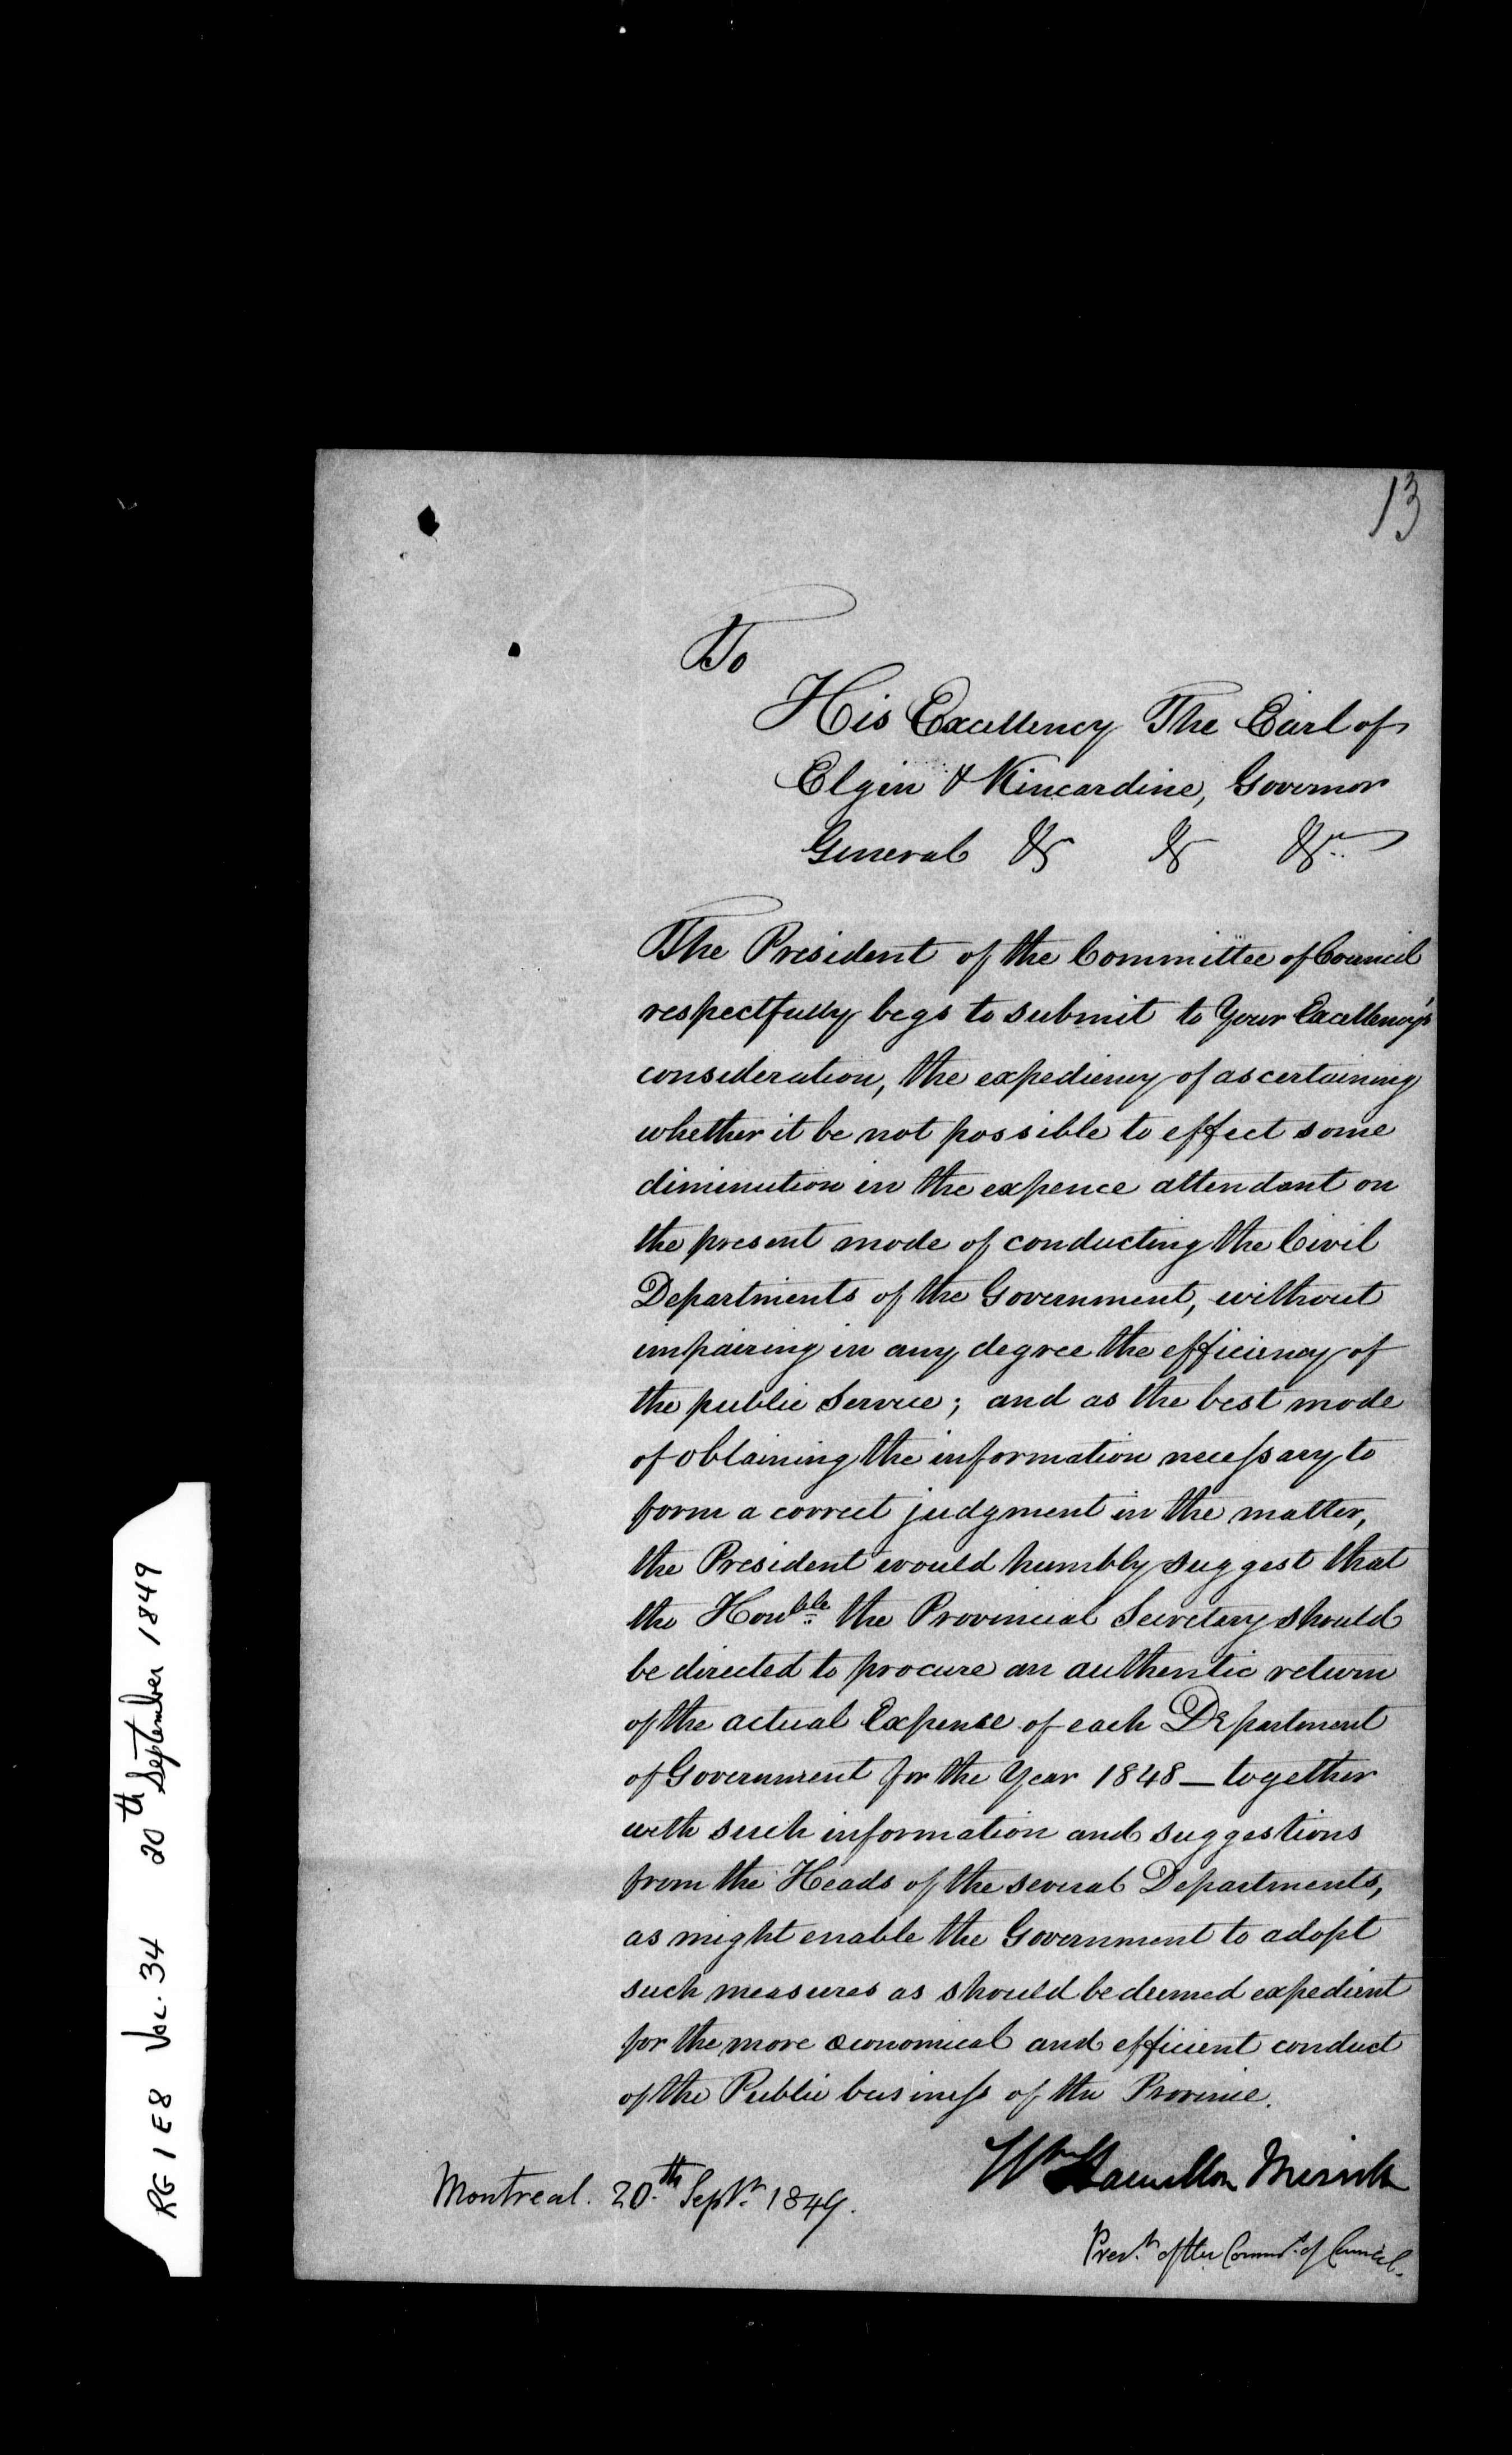 13
To
His Excellency The Earl of
Elgin & Kincardine, Governor
General &c &c &c.
The President of the Committee of Council
respectfully begs to submit to Your Excellency's
consideration, the expediency of ascertaining
whether it be not possible to effect some
diminution in the expence attendant on
the present mode of conducting the Civil
Departments of the Government, without
impairing in any degree the efficiency of
the public Service; and as the best mode
of obtaining the information neceſsary to
form a correct judgment in the matter,
the President would humbly suggest that
the Honble the Provincial Secretary should
be directed to procure an authentic return
of the actual Expense of each Department
of Government for the Year 1848 — together
with such information and suggestions
from the Heads of the several Departments,
as might enable the Government to adopt
such measures as should be deemed expedient
for the more œconomical and efficient conduct
of the Public buisineſs of the Province.
Wm Hamilton Merritt
Presdt of the Commt. of Council.
Montreal. 20th Septr. 1849.
RG 1 E8 Vol. 34 20th September 1849